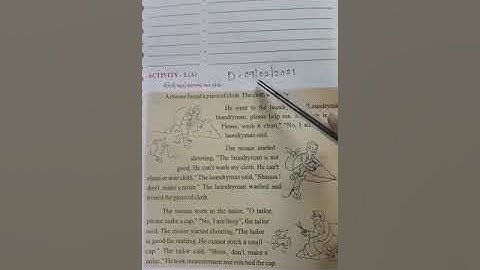 ACTIVITY - 2 (A)
A mouse found a piece of cloth. The cloth
He went to the laundry
laundryman, please help me.
Please, wash it clean." "No, I
laundryman said.
The mouse started
shouting, "The laundryman is not
good. He can't wash my cloth. He can't
clean or wash cloth." The laundryman said, "Shssss!
don't make a noise." The laundryman washed and
ironed the piece of cloth.
The mouse went to the tailor, "O tailor,
please make a cap." "No, I am busy", the tailor
said. The mouse started shouting, "The tailor
is good for nothing. He cannot stitch a small
cap." The tailor said, "Shsss, don't make a
noise." He took measurement and stitched the cap.